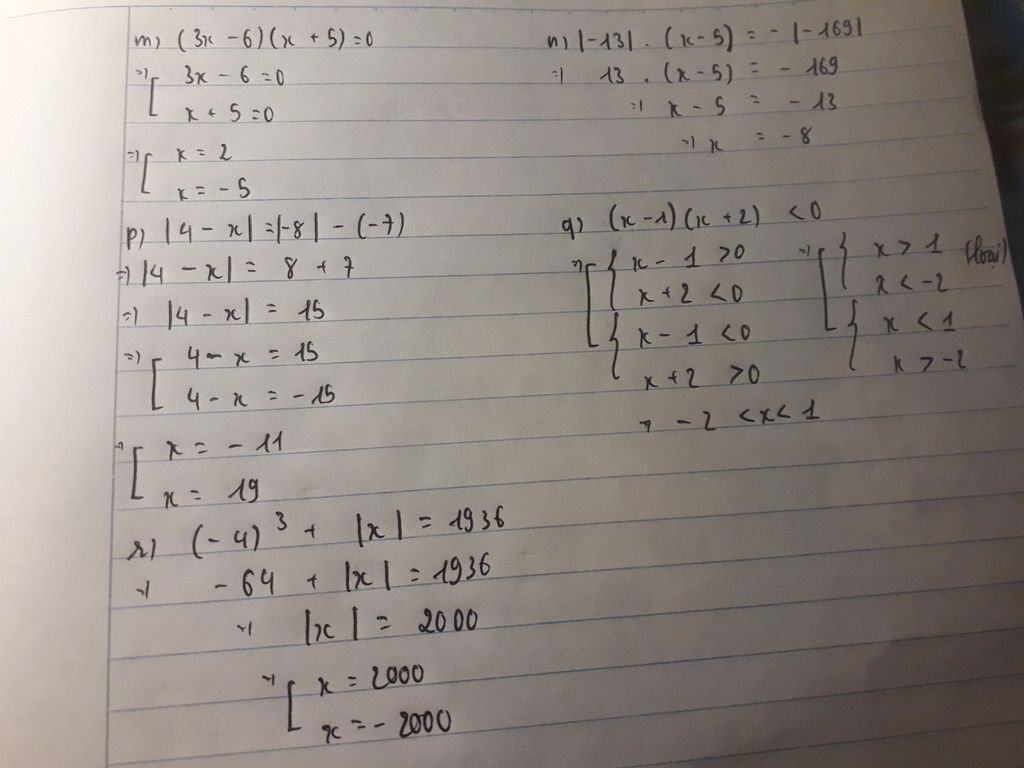 m) (3x - 6)(x + 5) = 0
=> [ 3x - 6 = 0
x + 5 = 0
=> [ x = 2
x = -5
n) |-13| . (x - 5) = - |-169|
=> 13 . (x - 5) = - 169
=> x - 5 = - 13
=> x = - 8
p) |4 - x| = |-8| - (-7)
=> |4 - x| = 8 + 7
=> |4 - x| = 15
=> [ 4 - x = 15
4 - x = -15
=> [ x = - 11
x = 19
q) (x - 1)(x + 2) < 0
=> [ { x - 1 > 0 => [ { x > 1 (loại)
x + 2 < 0 x < -2
{ x - 1 < 0 { x < 1
x + 2 > 0 x > -2
=> - 2 < x < 1
r) (-4)³ + |x| = 1936
=> - 64 + |x| = 1936
=> |x| = 2000
=> [ x = 2000
x = - 2000